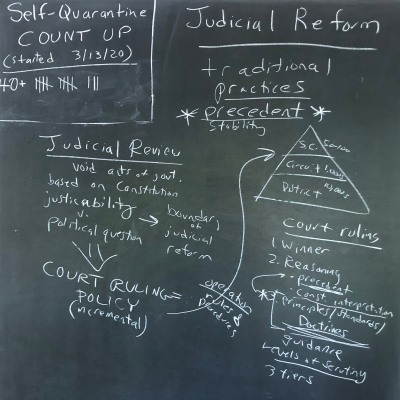 Self-Quarantine
COUNT UP
(started 3/13/20)
40+ 卌 卌 III
Judicial Reform
traditional
practices
* precedent *
stability
Judicial Review
void acts of gout.
based on Constitution
justicability
v.
political question
boundary
of
judicial
reform
COURT RULING=
POLICY
(incremental)
operation
rules &
procedures
S.C.
Circuit
District
Court rulings
1. Winner
2. Reasoning
- precedent
- Const. interpretation
* principles/standards/
Doctrines
guidance
Levels of Scrutiny
3 tiers